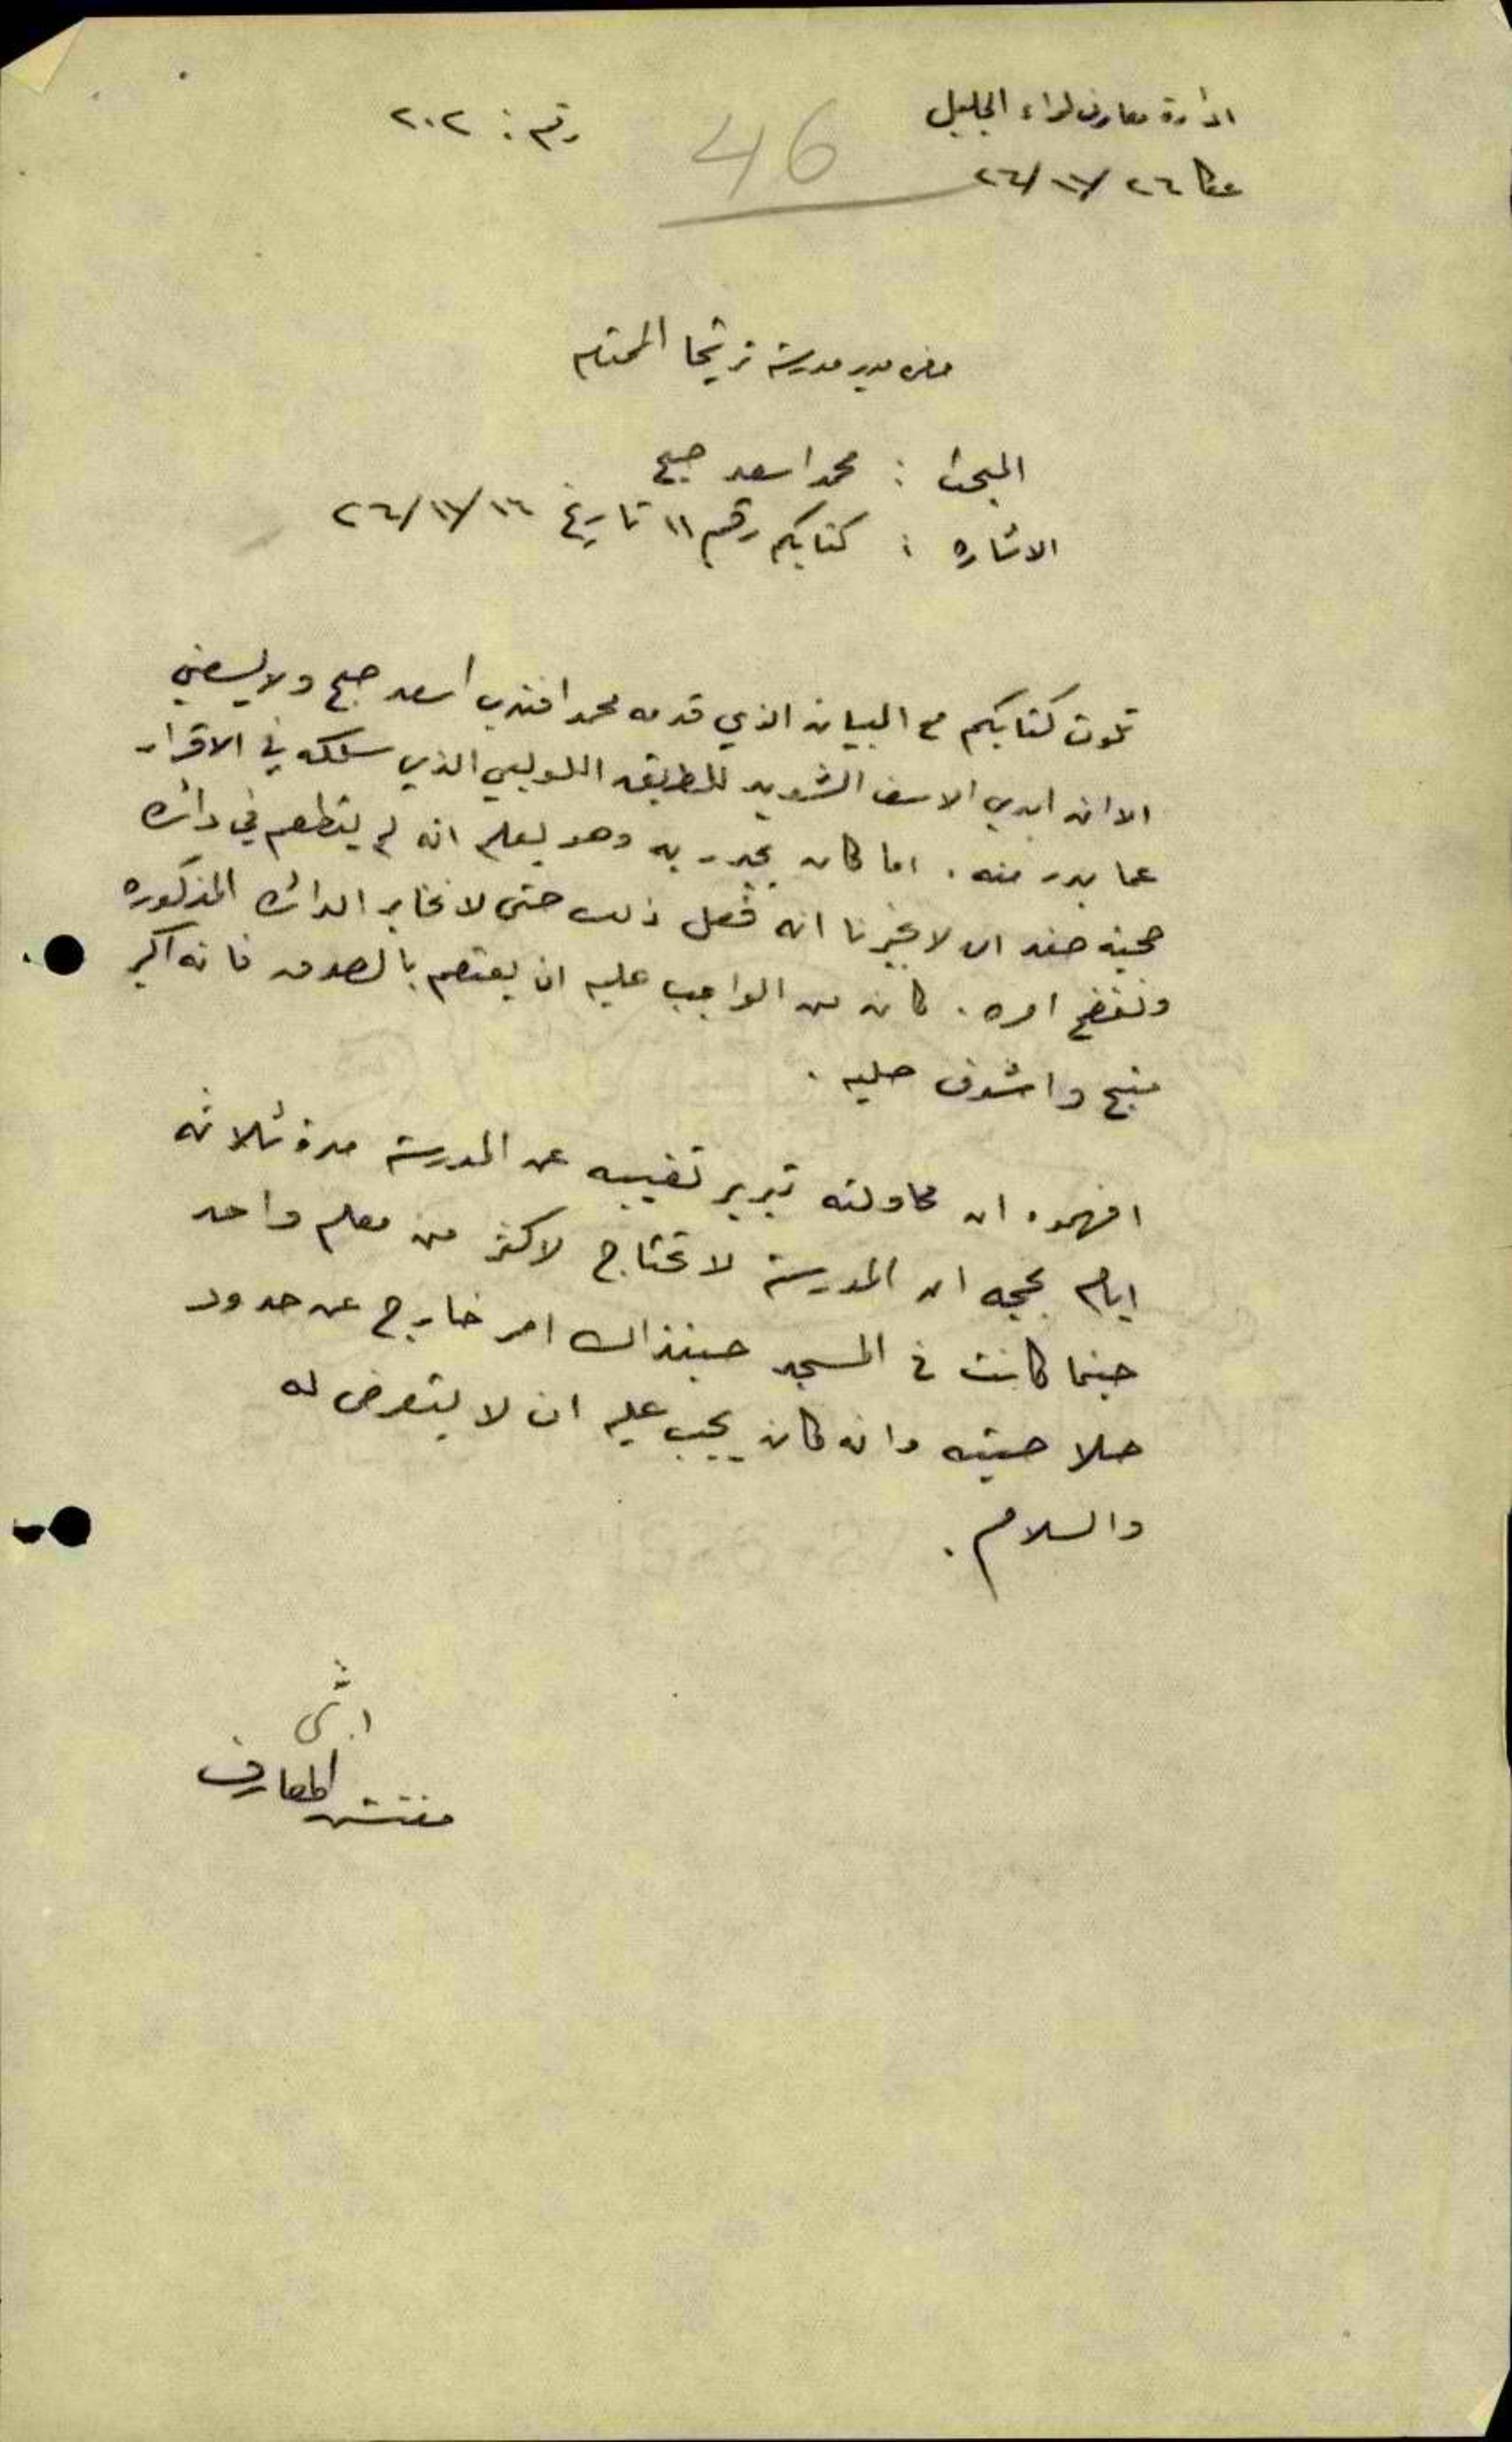 ادارة معارف لواء الجليل
رقم : ٢٠٢
46
عكا ٢٦/١١/٢٦
حضرة مدير مدرسة ترشيحا المحترم
المبحث : محمد اسعد صبح
الاشاره : كتابكم رقم ١١ تاريخ ١٦/١١/٢٦
تلوت كتابكم مع البيان الذي قدمه محمد افندي اسعد صبح ولا يسعني
الا ان ابدي الاسف الشديد للطريق اللولبي الذي سلكه في الاقرار
عما بدر منه . اما كان يجدر به وهو يعلم انه لم يتطعم في دائرة
صحية صفد ان لا يخبرنا انه فعل ذلك حتى لا نخابر الدائره المذكوره
ونفضح امره . كان من الواجب عليه ان يعتصم بالصدق فانه اكبر
منج واشرف حليه .
افهموه ان محاولته تبرير تغيبه عن المدرسة مدة ثلاثه
ايام بحجه ان المدرسة لا تحتاج لاكثر من معلم واحد
حينما كانت في المسجد حينذاك امر خارج عن حدود
صلاحيته وانه كان يجب عليه ان لا يتعرض له
والسلام .
مفتش المعارف